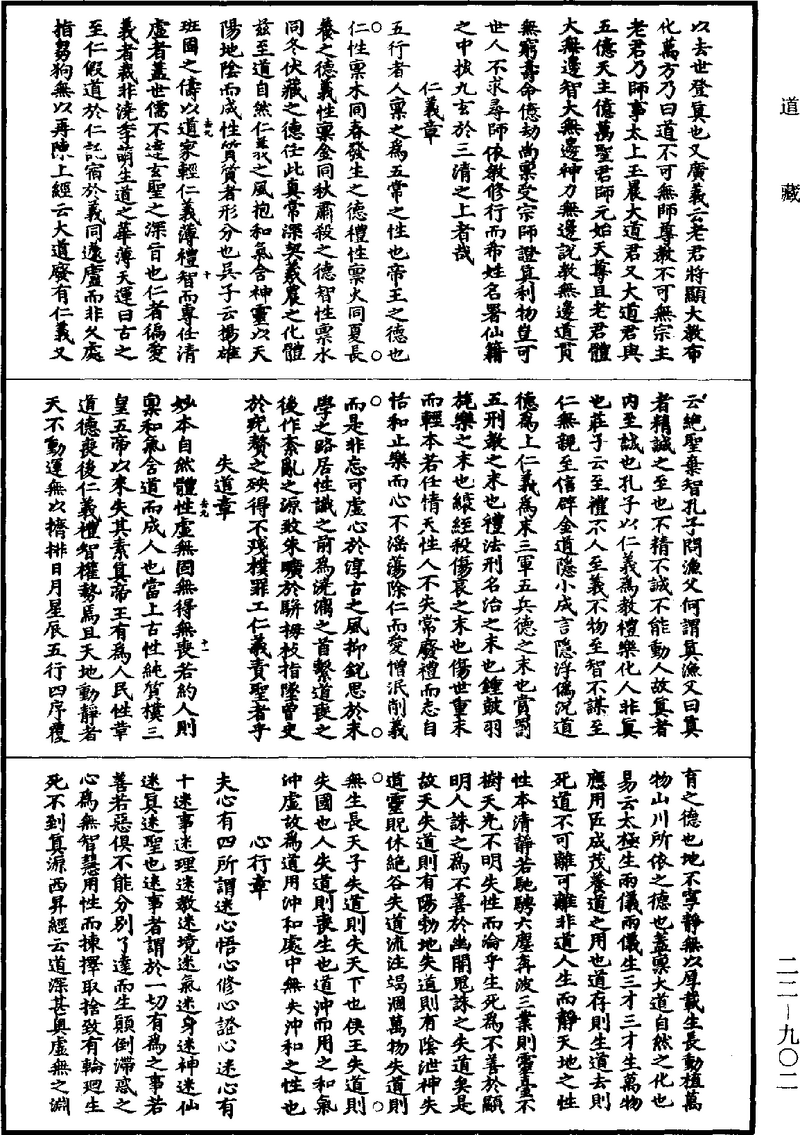 道藏
二二—九〇二
以去世登真也又廣義云老君將顯大教布
化萬方乃曰道不可無師尊教不可無宗主
老君乃師事太上玉晨大道君又大道君與
五億天主億萬聖君師元始天尊且老君體
大無邊智大無邊神力無邊說教無邊道貫
無窮壽命億劫尚稟受宗師證真利物豈可
世人不求尋師依教修行而希姓名署仙籍
之中拔九玄於三清之上者哉
仁義章
五行者人稟之為五常之性也帝王之德也
仁性稟木同春發生之德禮性稟火同夏長
養之德義性稟金同秋肅殺之德智性稟水
同冬伏藏之德任此真常深契羲農之化體
茲至道自然仁義之風抱和氣含神靈以天
陽地陰而成性質質者形分也吳子云揚雄
班固之儔以道家輕仁義薄禮智而專任清
虛者蓋世儒不達玄聖之深旨也仁者徧愛
義者裁非澆季萌生道之華薄天運曰古之
至仁假道於仁託宿於義同遽廬而非久處
指芻狗無以再陳上經云大道廢有仁義又
云絕聖棄智孔子問漁父何謂真漁父曰真
者精誠之至也不精不誠不能動人故真者
內至誠也孔子以仁義為教禮樂化人非真
也莊子云至禮不人至義不物至智不謀至
仁無親至信辟金道隱小成言隱浮偽況道
德為上仁義為末三軍五兵德之末也賞罰
五刑教之末也禮法刑名治之末也鍾鼓羽
旄樂之末也縗絰殺傷哀之末也傷世重末
而輕本若任情天性人不失常廢禮而志自
恬和止樂而心不滛蕩除仁而愛憎泯削義
而是非忘可虛心於淳古之風抑銳思於末
學之路居性識之前為澆漓之首繫道喪之
後作紊亂之源致朱曠於駢拇枝指墜曾史
於疣贅之殃得不殘樸罪工仁義責聖者乎
失道章
妙本自然體性虛無固無得無喪若約人則
稟和氣含道而成人也當上古性純質樸三
皇五帝以來失其素真帝王有為人民性章
道德喪後仁義禮智權勢焉且天地動靜者
天不動運無以擠排日月星辰五行四序覆
育之德也地不寧靜無以厚載生長動植萬
物山川所依之德也蓋稟大道自然之化也
易云太極生兩儀兩儀生三才三才生萬物
應用匠成茂養道之用也道存則生道去則
死道不可離可離非道人生而靜天地之性
性本清靜若馳騁六塵奔波三業則靈臺不
樹天光不明失性而淪乎生死為不善於顯
明人誅之為不善於幽闇鬼誅之失道矣是
故天失道則有陽勃地失道則有陰泄神失
道靈貺休絕谷失道流注竭涸萬物失道則
無生長天子失道則失天下也侯王失道則
失國也人失道則喪生也道沖而用之和氣
沖虛故為道用沖和處中無失沖和之性也
心行章
夫心有四所謂迷心悟心修心證心迷心有
十迷事迷理迷教迷境迷氣迷身迷神迷仙
迷真迷聖也迷事者謂於一切有為之事若
善若惡俱不能分別了達而生顛倒滯惑之
心為無智慧用性而揀擇取捨致有輪廻生
死不到真源西昇經云道深甚奧虛無之淵